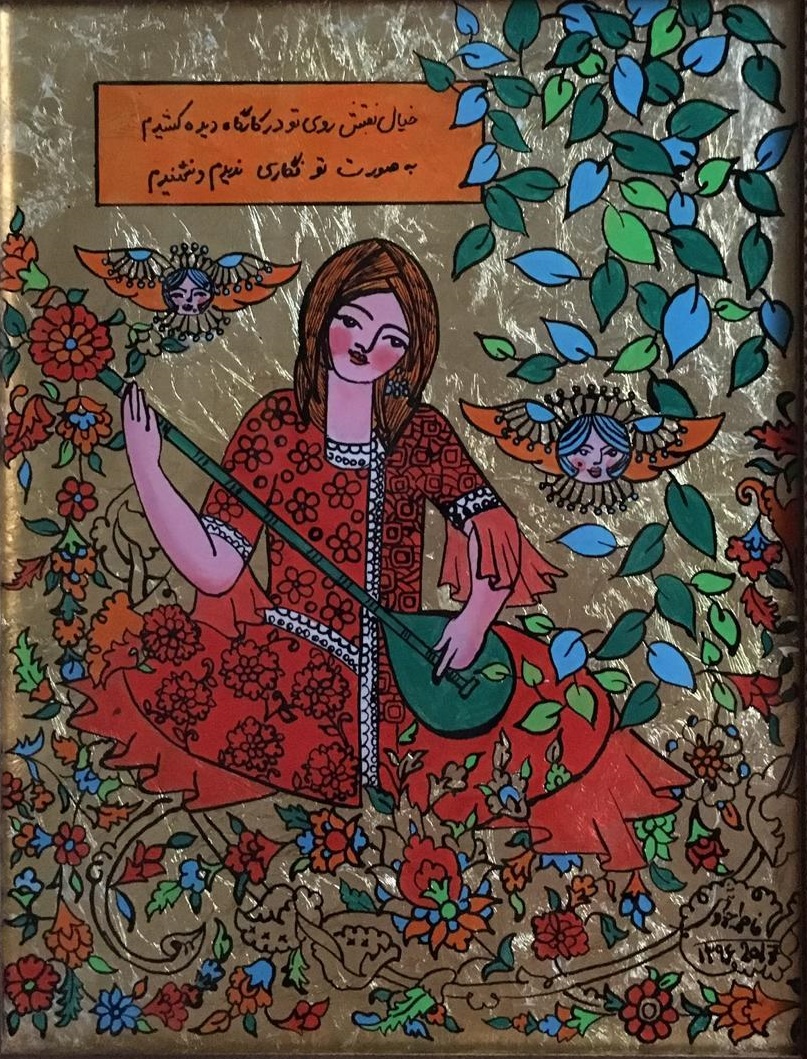 خیال نقش روی تو در کارگاه دیده کشیدم
به صورت تو نگاری ندیدم و نشنیدم
فاطمه
۱۳۹۶ 2017